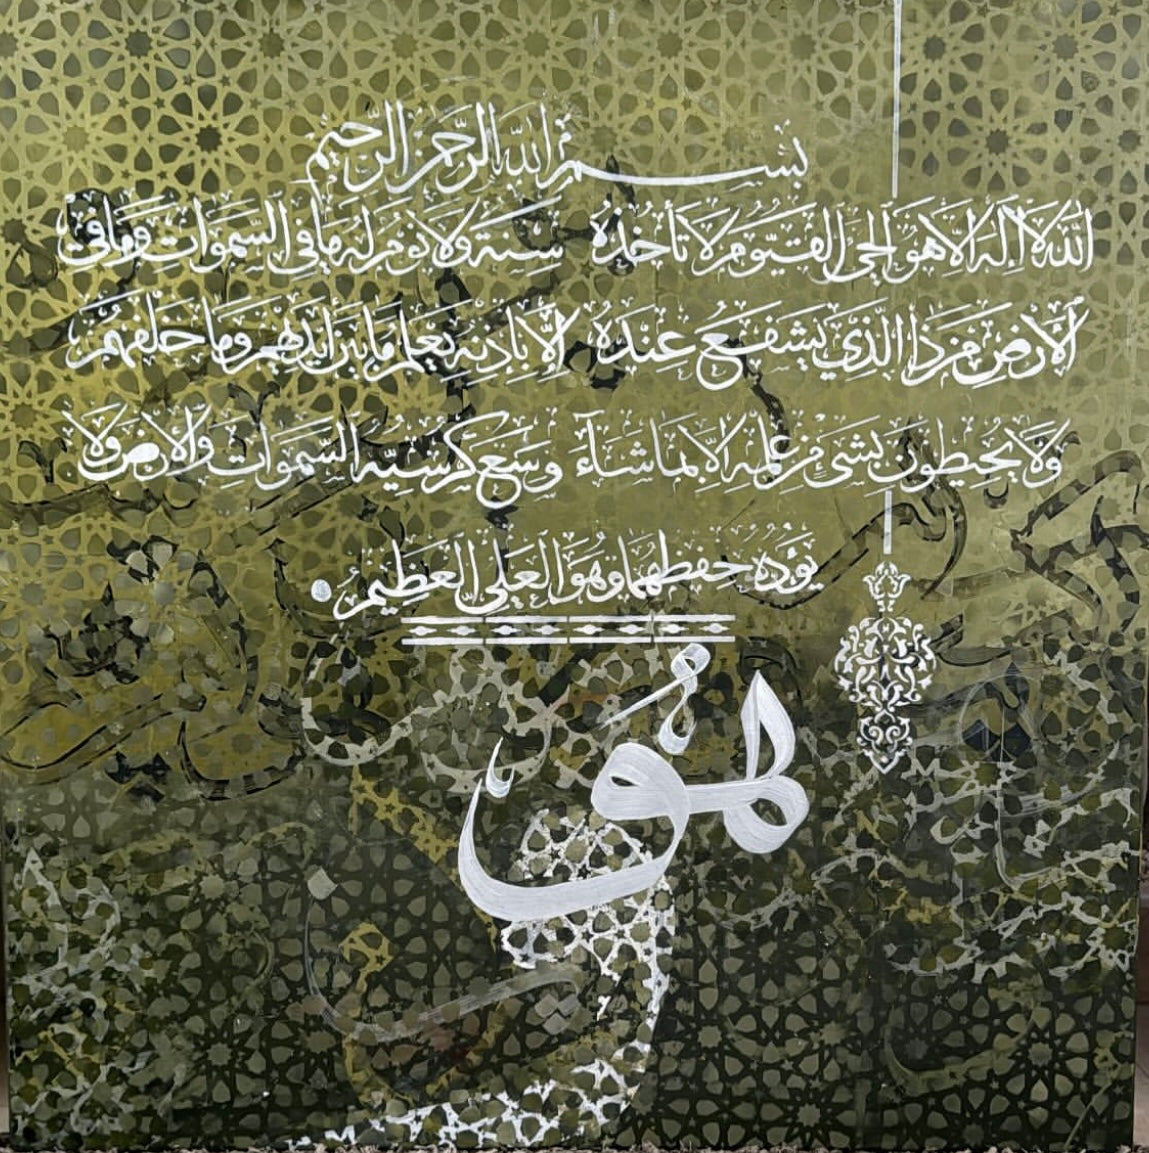 بسم الله الرحمن الرحيم
الله لا اله الا هو الحي القيوم لا تأخذه سنة ولا نوم له ما في السموات وما في
الأرض من ذا الذي يشفع عنده إلا بإذنه يعلم ما بين أيديهم وما خلفهم
ولا يحيطون بشئ من علمه الا بما شاء وسع كرسيه السموات والأرض ولا
يؤده حفظهما وهو العلي العظيم
هو